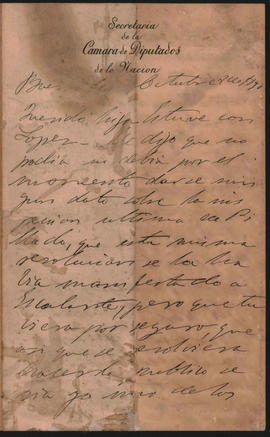 Secretaría
de la
Cámara de Diputados
de la Nación
Octubre
Querido hijo Estuve con
Lopez me dijo que no
podia ni debia por el
momento darse nin
gun dato sobre la mi
sion ultima de Pi
llado, que esta misma
resolucion se la ha
bia manifestado a
Escalante, pero que tu
viera por seguro, que
asi que se pudiera
hacerlo publico se
ria yo uno de los